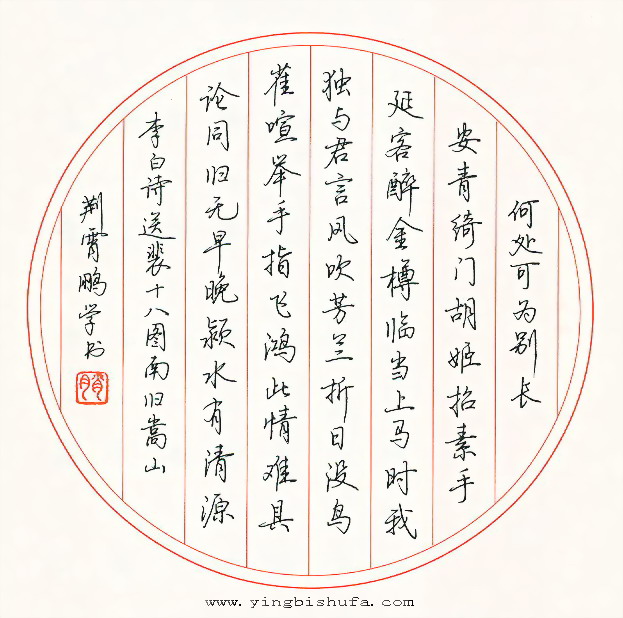 何处可为别长
安青绮门胡姬招素手
延客醉金樽临当上马时我
独与君言风吹芳兰折日没鸟
雀喧举手指飞鸿此情难具
论同归无早晚颍水有清源
李白诗送裴十八图南归嵩山
荆霄鹏学书
www.yingbishufa.com